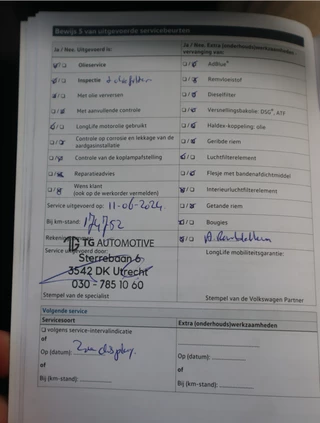 Bewijs 3 van uitgevoerde servicebeurten
Ja / Nee. Uitgevoerd is:
Olieservice
Inspectie
Met olie verversen
Met aanvullende controle
LongLife motorolie gebruikt
Controle op corrosie en lekkage van de aardgasinstallatie
Controle van de koplampafstelling
Reparatieadvies
Wens klant
(ook op de werkorder vermelden)
Service uitgevoerd op: 11-06-2024
Bij km-stand: 174752
Service uitgevoerd door:
TG AUTOMOTIVE
Sterrebaan 6
3542 DK Utrecht
030 - 785 10 60
Stempel van de specialist
Ja / Nee. Extra (onderhouds)werkzaamheden
vervanging van:
AdBlue®
Remvloeistof
Dieselfilter
Versnellingsbakolie: DSG®, ATF
Haldex-koppeling: olie
Geribde riem
Luchtfilterelement
Flesje met bandenafdichtmiddel
Interieurluchtfilterelement
Getande riem
Bougies
LongLife mobiliteitsgarantie:
Stempel van de Volkswagen Partner
Volgende service
Servicesoort
volgens service-intervalindicatie
of
Op (datum): Zie display.
of
Bij (km-stand):
Extra (onderhouds)werkzaamheden
Op (datum):
of
Bij (km-stand):